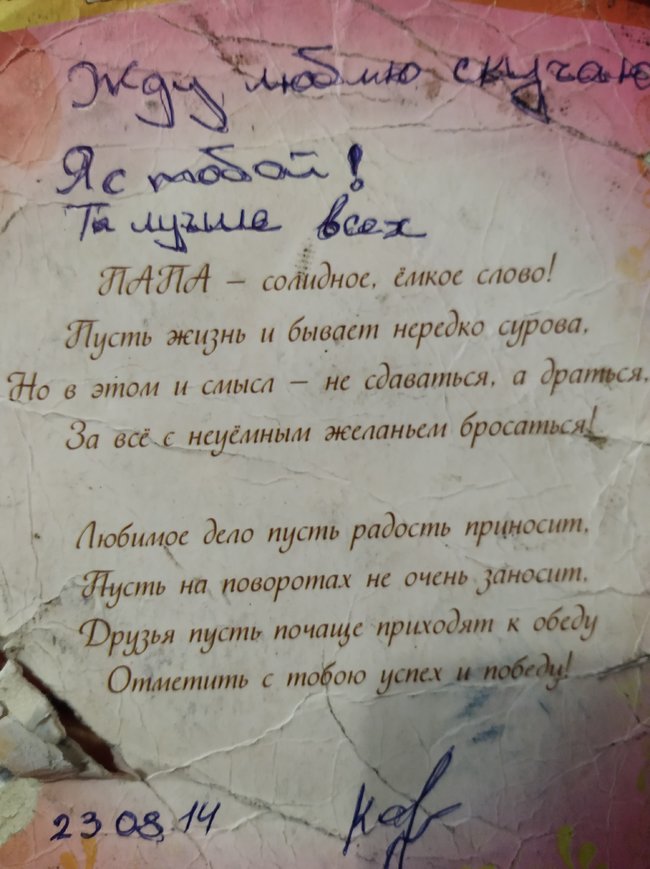 Жду люблю скучаю
Я с тобой!
Ты лучше всех
ПАПА – солидное, ёмкое слово!
Пусть жизнь и бывает нередко сурова,
Но в этом и смысл – не сдаваться, а драться,
За всё с неуёмным желаньем бросаться!
Любимое дело пусть радость приносит,
Пусть на поворотах не очень заносит,
Друзья пусть почаще приходят к обеду
Отметить с тобою успех и победу!
23.08.14